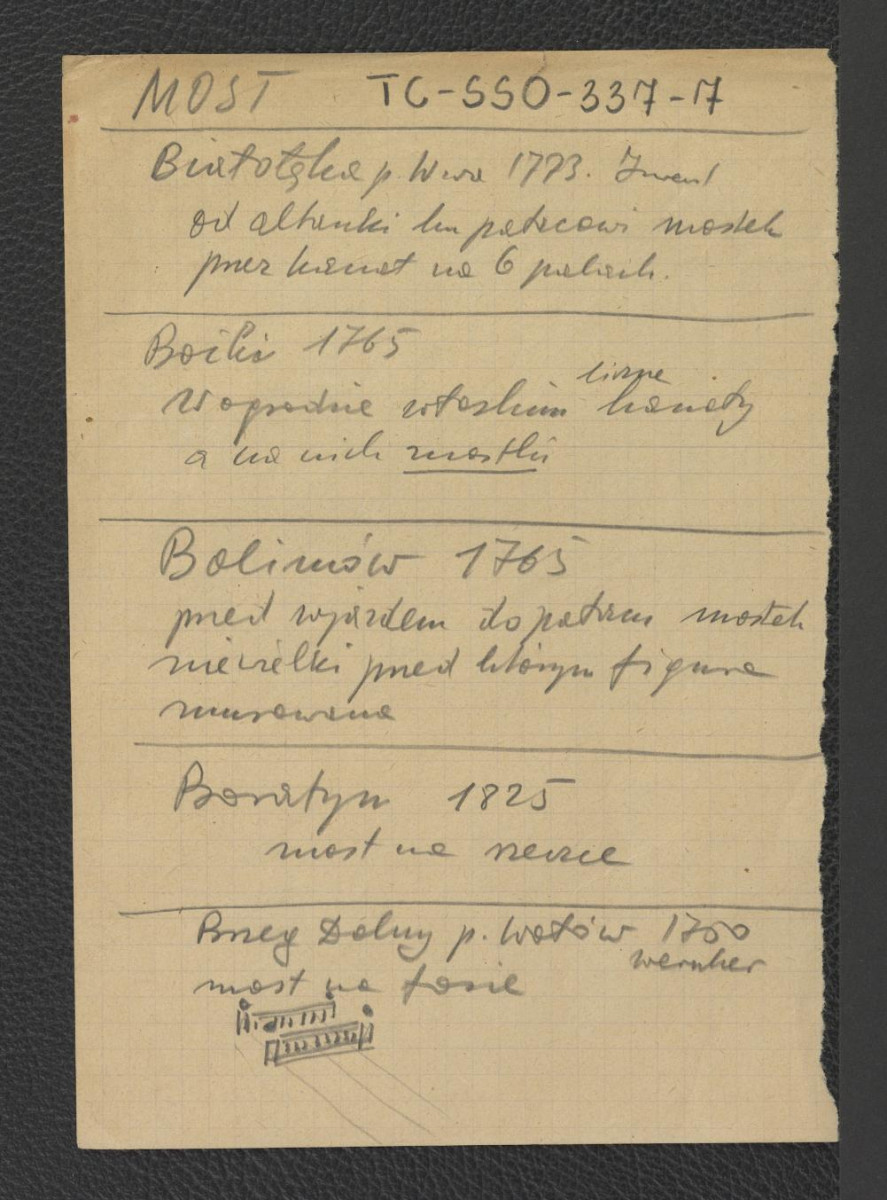 MOST TC-SSO-337-17
Białołęka p. W-wa 1773. Inwent
od altanki ku pałacowi mostek
przez kanał na 6 palach.
Boćki 1765
liczne
W ogrodzie włoskim kanały
a na nich mostki
Bolimów 1765
przed wjazdem do pałacu mostek
niewielki przed którym figura
murowana
Boratyn 1825
most na rzece
Brzeg Dolny p. Wołów 1750
Wernher
most na fosie